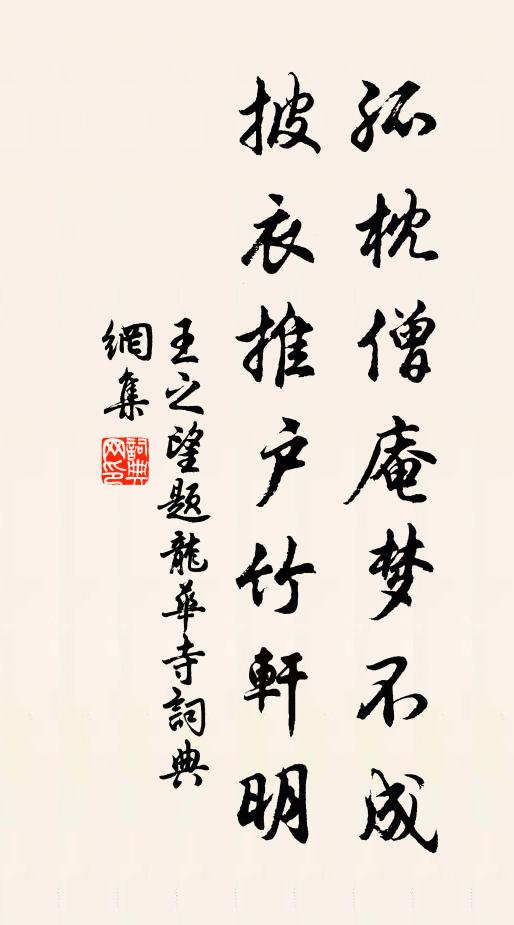 孤枕僧庵梦不成
披衣推户竹軒明
王之望题龍華寺詞典
網集
詞典网印